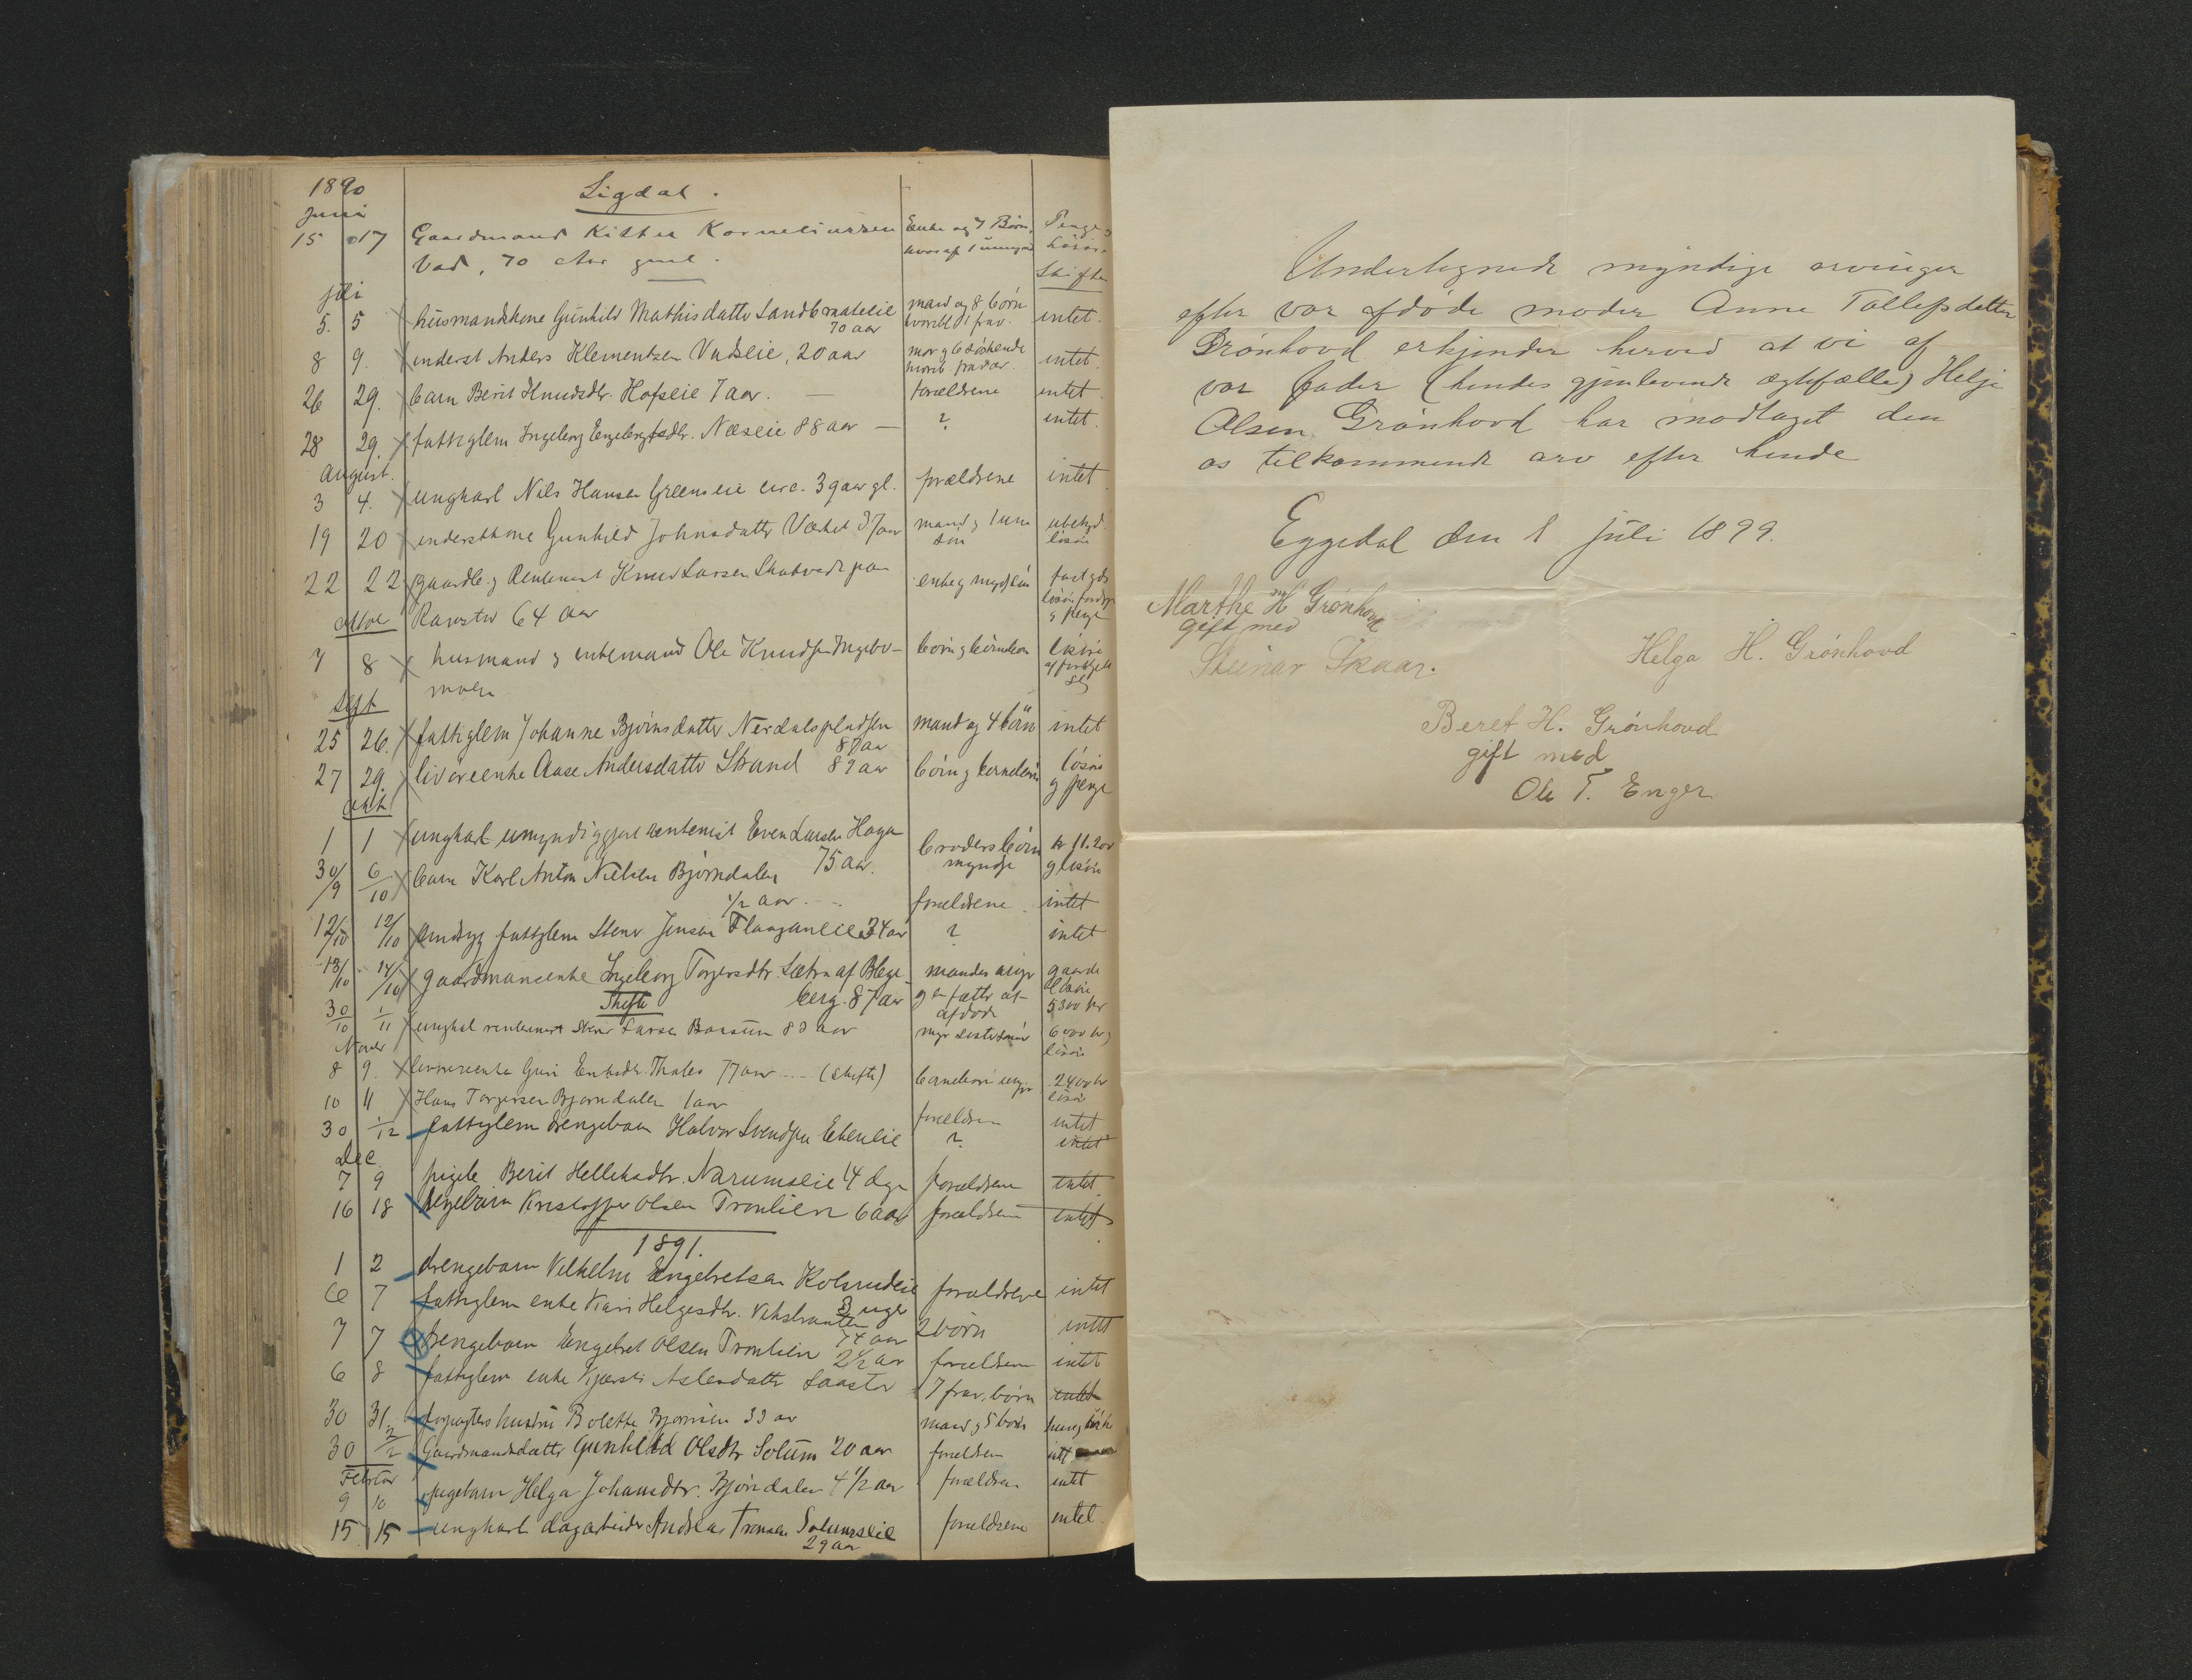 1890
Sigdal.
Juni
15 17 Gaardmand Kittel Korneliussen Enke og 7 Børn, Penge
Vad, 70 Aar gml. hvoraf 1 umynd
Skifte
juli
5. 5 husmandskone Gunhild Mathisdatter Sandbraateeie mand og 8 børn intet.
70 aar hvoraf 1 frav.
8 9. inderst Anders Klementsen Vadseie, 20 aar mor og 6 søskende intet.
26 29. barn Berit Knudsdtr. Hofseie 7 aar. — forældrene intet
28 29. fattiglem Ingeborg Engebretsdtr. Næseie 88 aar — ? intet.
August.
3 4. ungkarl Nils Hansen Greenseie circ. 39 aar gl. forældrene intet
19 20 inderstkone Gunhild Johnsdatter 37 aar mand og 1 um ubetyd.
søn løsøre
22 22 gaardbr. og Rentenist Knud Larsen paa enke og myndig søn
Ramstad 64 aar og penge
7 8 husmand og enkemand Ole Knudsen børn og børnebørn løsøre
moen
Sept
25 26. fattiglem Johanne Bjørnsdatter Nerdalspladsen mand og 4 børn intet
87 aar
27 29. livøreenke Aase Andersdatter Strand 89 aar børn og børnebørn løsøre
og penge
Okt
1 1 ungkarl umyndiggjort rentenist Even Larsen Haga brodersbørn
75 aar. myndige og løsøre
30/9 6/10 barn Karl Anton Nielsen Bjørndalen
1/2 aar forældrene intet
12/10 12/10 sindsyg fattiglem Sten Jensen Flaaganeie 34 aar ? intet
13/10 14/10 gaardmansenke Ingeborg Torgersdtr. Sætra af Blege- mandens arvinger gaarde
Skifte berg. 87 aar løsøre
afdøde 5300 kr
30/10 1/11 ungkarl rentenist Larsen 83 aar 6000 kr
Novbr løsøre
8 9. livøreenke Guri Eriksdtr. Thales 77 aar (skifte) 2400 kr
løsøre
10 11 Hans Torgersen Bjørndalen 1 aar forældrene intet
30 1/12 fattiglem drengebarn Halvor Svendsen Ekeneie ? intet
Dec
7 9 pigeb. Berit Helleksdtr. Narumseie 14 dge forældrene intet
16 18 drengebarn Kristoffer Olsen Tronlien 6 aar forældrene intet
1891.
1 2 drengebarn Vilhelm Engebretsen Kolsrudeie forældrene intet
3 uger
6 7 fattiglem enke Kari Helgesdtr. 2 børn intet
74 aar
7 7 drengebarn Engebret Olsen Tronlien 2 1/2 aar forældrene intet
6 8 fattiglem enke Kjersti Aslesdatter 7 frav. børn intet
30 31. forpagters hustru Bolette Bjørnsen 33 aar mand og 5 børn
30 2/2 Gaardmandsdatter Gunhild Olsdtr Solum 20 aar forældrene intet
Februar
9 10 pigebarn Helga Johansdtr. Bjørndalen 4 1/2 aar forældrene intet
15 15 ungkarl dagarbeider Andreas Tronsen Solumseie forældrene intet.
29 aar
Undertegnede myndige arvinger
efter vor afdøde moder Anne Tollefsdatter
Grønhovd erkjender herved at vi af
vor fader (hendes gjenlevende ægtefælle) Helge
Olsen Grønhovd har modtaget den
os tilkommende arv efter hende
Eggedal den 1 juli 1899.
Marthe H Grønhovd
gift med
Steinar Skaar.
Helga H. Grønhovd
Beret H. Grønhovd
gift med
Ole T. Enger